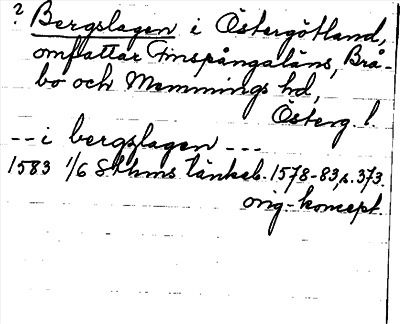 ? Bergslagen i Östergötland,
omfattar Finspångaläns, Brå-
bo och Memmings hd,
Österg. l.
-- i bergslagen ---
1583 1/6 Sthms tänkeb. 1578-83, s. 373.
orig.-koncept.